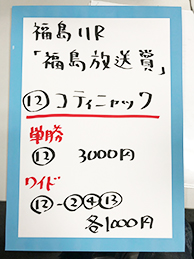 福島11R
「福島放送賞」
⑫コティニャック
単勝
⑫ 3000円
ワイド
⑫-②④⑬
各1000円